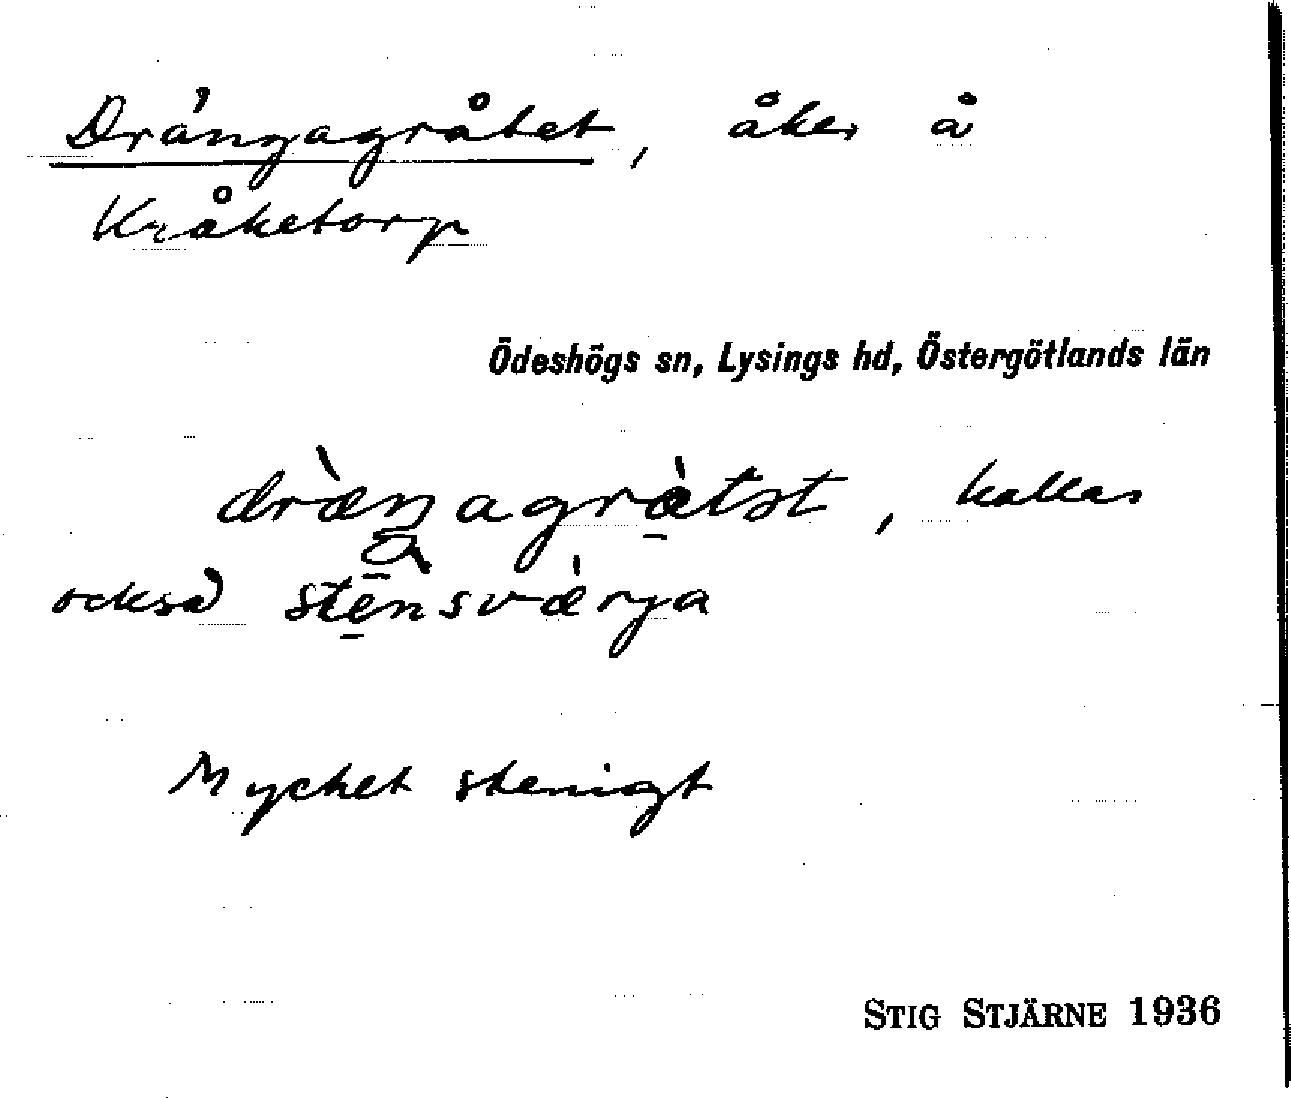 Drängagråtet, åker å
Kråketorp
Ödeshögs sn, Lysings hd, Östergötlands län
dræ̀ŋagrå̀tət, kallas
också ste̱nsvæ̀rja
Mycket stenigt
STIG STJÄRNE 1936